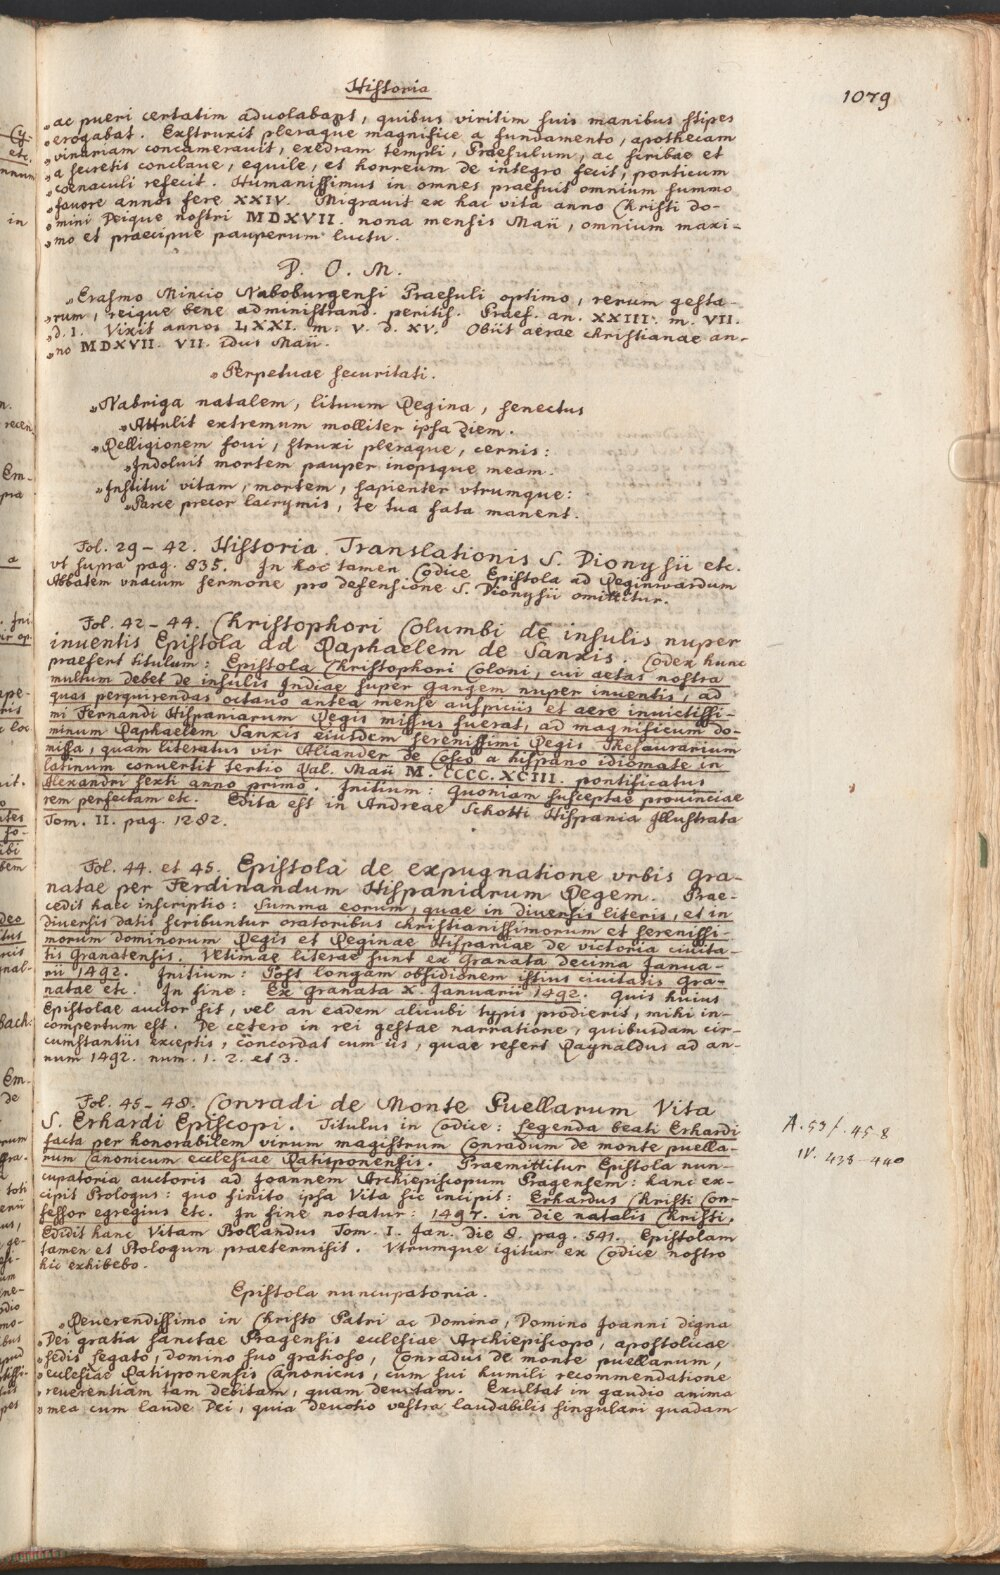 Historia
1079
„ac pueri certatim aduolabant, quibus viritim suis manibus stipes
„erogabat. Exstruxit pleraque magnifice a fundamento, apothecam
„vinariam concamerauit, exedram templi, Praesulum, ac scribae et
„a secretis conclaue, equile, et horreum de integro fecit, porticum
„coenaculi refecit. Humanissimus in omnes praefuit omnium summo
„fauore annos fere XXIV. Migrauit ex hac vita anno Christi do-
„mini Deique nostri MDXVII. nona mensis Maii, omnium maxi-
„mo et praecipue pauperum luctu.
D. O. M.
„Erasmo Mincio Naboburgensi Praesuli optimo, rerum gesta-
„rum, reique bene administrand. peritis. Praef. an. XXIII. m. VII.
„d. I. Vixit annos LXXI. m. v. d. XV. Obiit aerae christianae an-
„no MDXVII. VII. idus Maii.
„Perpetuae securitati.
„Nabriga natalem, lituum Regina, senectus
„Attulit extremum molliter ipsa diem.
„Relligionem foui, struxi pleraque, cernis:
„Indoluit mortem pauper inopsque meam.
„Institui vitam, mortem, sapienter vtrumque:
„Parce precor lacrymis, te tua fata manent.
Fol. 29 – 42. Historia Translationis S. Dionysii etc.
vt supra pag. 835. In hoc tamen Codice Epistola ad Reginwardum
Abbatem vnacum sermone pro defensione S. Dionysii omittitur.
Fol. 42 – 44. Christophori Columbi de insulis nuper
inuentis Epistola ad Raphaelem de Sanxis. Codex hunc
praefert titulum: Epistola Christophori Coloni, cui aetas nostra
multum debet de insulis Indiae super Gangem nuper inuentis, ad
quas perquirendas octauo antea mense auspiciis et aere inuictissi-
mi Fernandi Hispaniarum Regis missus fuerat, ad magnificum do-
minum Raphaelem Sanxis eiusdem serenissimi Regis Thesaurarium
missa, quam literatus vir Aliander de Cosco a hispano idiomate in
latinum conuertit tertio Kal. Maii M. CCCC. XCIII. pontificatus
Alexandri sexti anno primo. Initium: Quoniam susceptae prouinciae
rem perfectam etc. Edita est in Andreae Schotti Hispania Illustrata
Tom. II. pag. 1282.
Fol. 44. et 45. Epistola de expugnatione vrbis Gra-
natae per Ferdinandum Hispaniarum Regem. Prae-
cedit haec inscriptio: Summa eorum, quae in diuersis literis, et in
diuersis datis scribuntur oratoribus christianissimorum et serenissi-
morum dominorum Regis et Reginae Hispaniae de victoria ciuita-
tis Granatensis. Vltimae literae sunt ex Granata decima Janua-
rii 1492. Initium: Post longam obsidionem istius ciuitatis Gra-
natae etc. In fine: Ex Granata X. Januarii 1492. Quis huius
Epistolae auctor sit, vel an eadem alicubi typis prodierit, mihi in-
compertum est. De cetero in rei gestae narratione, quibusdam cir-
cumstantiis exceptis, concordat cum iis, quae refert Raynaldus ad an-
num 1492. num. 1. 2. et 3.
Fol. 45 – 48. Conradi de Monte Puellarum Vita
S. Erhardi Episcopi. Titulus in Codice: Legenda beati Erhardi
facta per honorabilem virum magistrum Conradum de monte puella-
rum Canonicum ecclesiae Ratisponensis. Praemittitur Epistola nun-
cupatoria auctoris ad Joannem Archiepiscopum Pragensem: hanc ex-
cipit Prologus: quo finito ipsa Vita sic incipit: Erhardus Christi Con-
fessor egregius etc. In fine notatur: 1497. in die natalis Christi.
Edidit hanc Vitam Bollandus Tom. I. Jan. die 8. pag. 541. Epistolam
tamen et Prologum praetermisit. Vtrumque igitur ex Codice nostro
hic exhibebo.
A. 53 f. 45-8
IV. 438-440
Epistola nuncupatoria.
„Reuerendissimo in Christo Patri ac Domino, Domino Joanni digna
„Dei gratia sanctae Pragensis ecclesiae Archiepiscopo, apostolicae
„sedis Legato, domino suo gratioso, Conradus de monte puellarum,
„ecclesiae Ratisponensis Canonicus, cum sui humili recommendatione
„reuerentiam tam debitam, quam deuotam. Exultat in gaudio anima
„mea cum laude Dei, quia deuotio vestra laudabilis singulari quadam